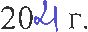 2021 г.